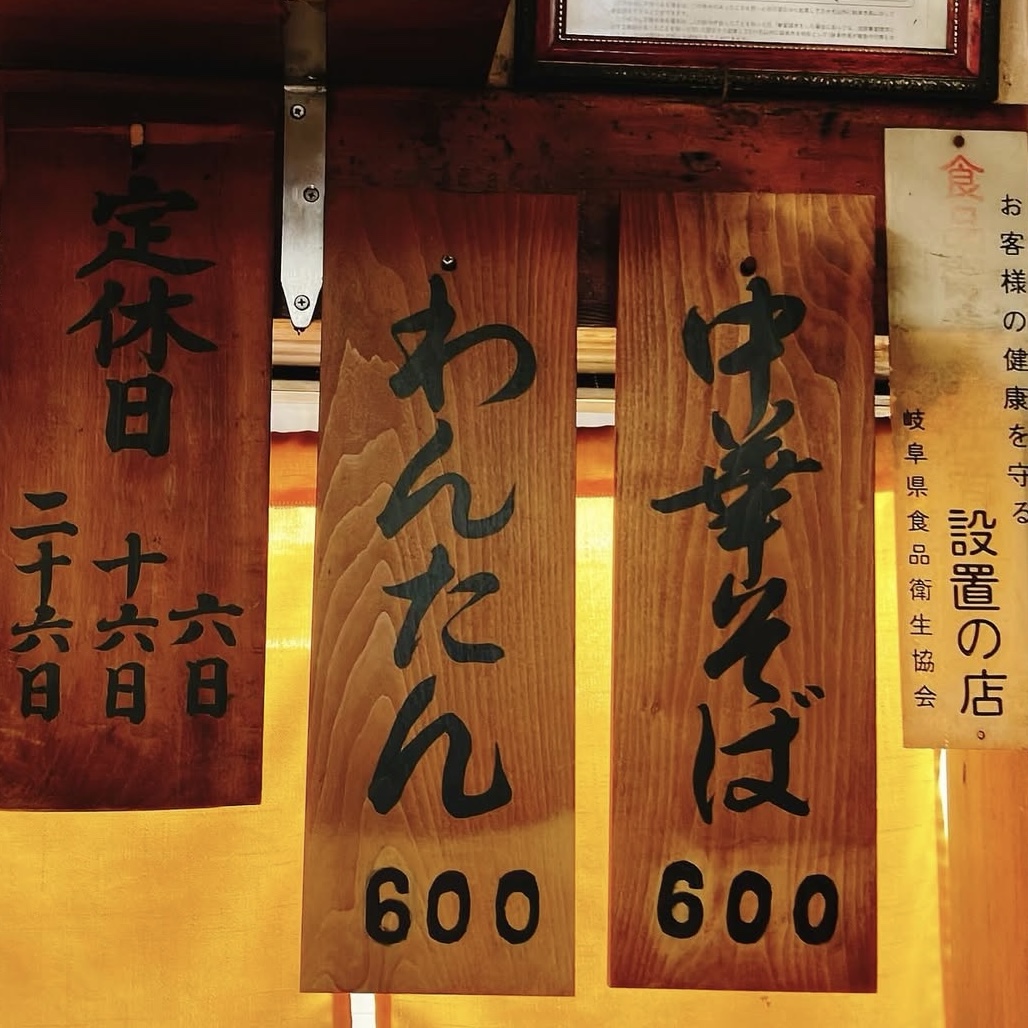 お客様の健康を守る
食品
設置の店
岐阜県食品衛生協会
中華そば
600
わんたん
600
定休日
六日
十六日
二十六日